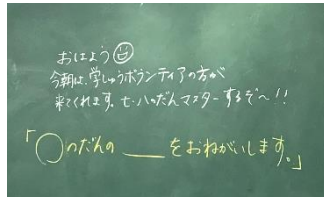 おはよう
今朝は、学しゅうボランティアの方が
来てくれます。七・八のだんマスターするぞ〜!!
「◯のだんの ___ をおねがいします。」